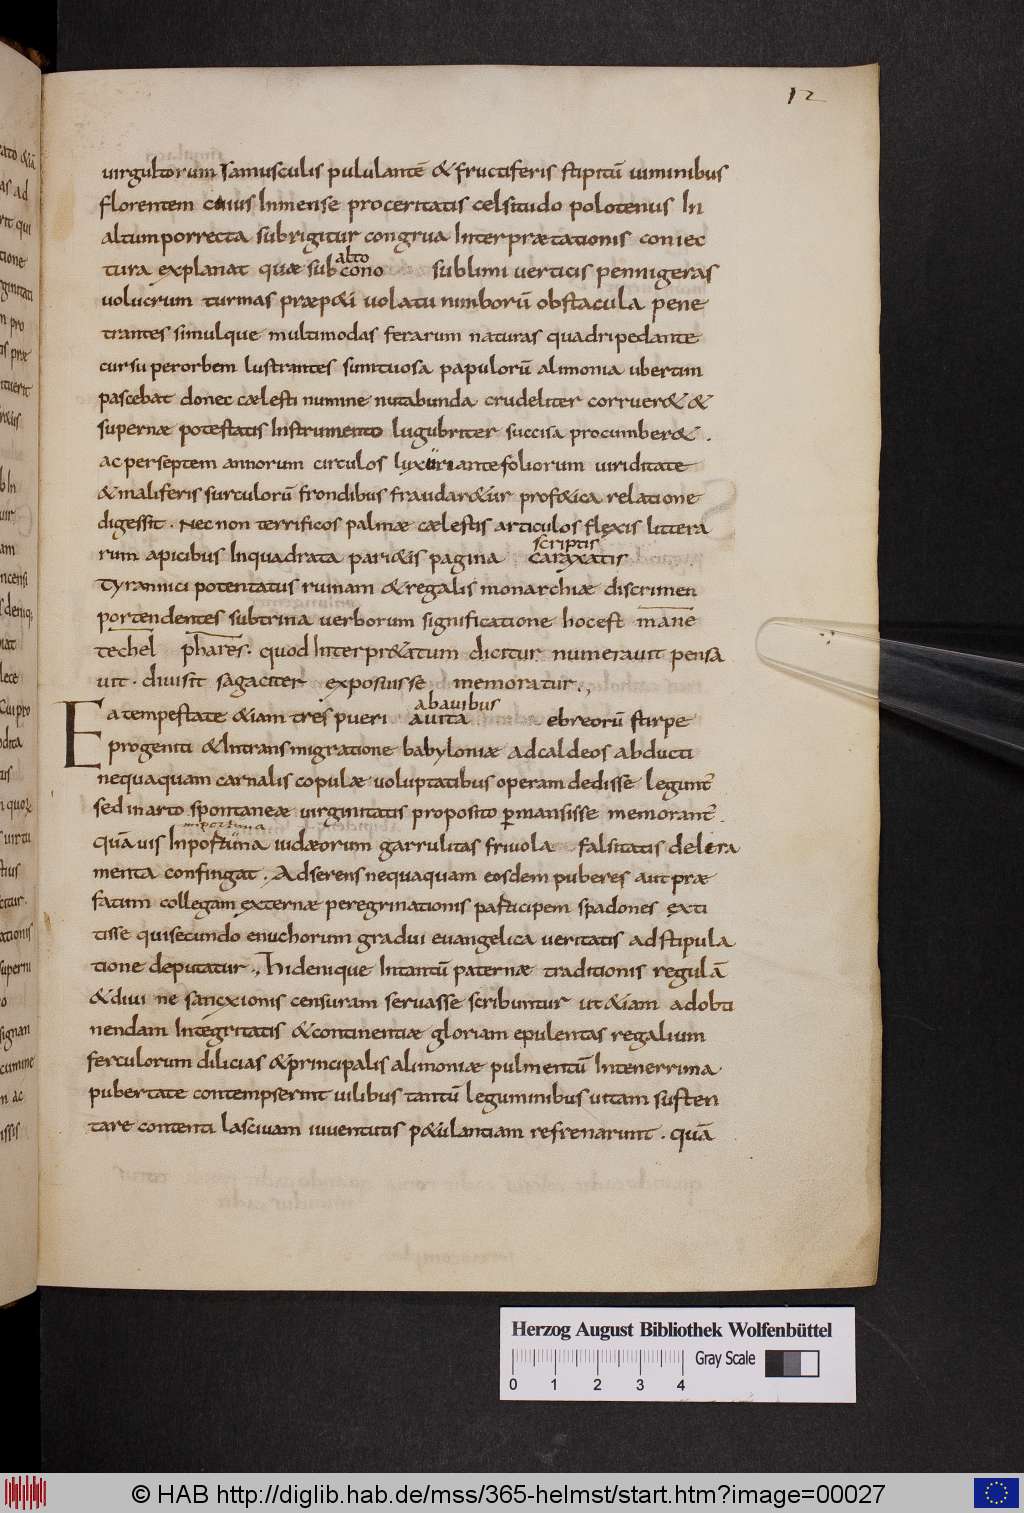 12
virgultorum ramusculis pululantē & fructiferis stipitū uiminibus
florentem cuius Inmense proceritatis celsitudo polotenus In
altum porrecta subrigitur congrua Interprætationis coniec
tura explanat quæ sub cono sublimi uerticis pennigeras
alto
uolucrum turmas præp&i uolatu nimborū obstacula pene
trantes simulque multimodas ferarum naturas quadripedante
cursu per orbem lustrantes sumtuosa papulorū alimonia ubertim
pascebat donec cælesti numine nutabunda crudeliter corruer& &
supernæ potestatis Instrumento lugubriter succisa procumber& .
ac per septem annorum circulos luxuriante foliorum uiriditate
& maliferis surculorū frondibus fraudar&ur prof&ica relatione
digessit . Nec non terrificos palmæ cælestis articulos flexis littera
rum apicibus Inquadrata pari&is pagina caraxatis
scriptis
tyrannici potentatus ruinam & regalis monarchiæ discrimen
portendentes subtrina uerborum significatione hoc est mane
techel phares . quod Interpr&atum dicitur numerauit pensa
uit . diuisit sagaciter exposuisse memoratur .,
abauibus
Ea tempestate &iam tres pueri auita ebreorū stirpe
progeniti & Intransmigratione babyloniæ ad caldeos abducti
nequaquam carnalis copulæ uoluptatibus operam dedisse legunt̄
sed in arto spontaneæ uirginitatis proposito pmansisse memorant̄ .
importuna
quāuis Inpostuna iudæorum garrulitas friuola falsitatis delera
menta confingat . Adserens nequaquam eosdem puberes aut præ
fatum collegam externæ peregrinationis participem spadones exti
tisse qui secundo enuchorum gradui euangelica ueritatis adstipula
tione deputatur ., Hi denique Intantū paternæ traditionis regulā
& diui ne sancxionis censuram seruasse scribuntur ut &iam adobti
nendam Integritatis & continentiæ gloriam epulentas regalium
ferculorum dilicias & principalis alimoniæ pulmentū Intenerrima
pubertate contempserint uilibus tantū leguminibus uitam susten
tare contenti lasciuam iuuentutis p&ulantiam refrenarint . quā
Herzog August Bibliothek Wolfenbüttel
Gray Scale
0 1 2 3 4
© HAB http://diglib.hab.de/mss/365-helmst/start.htm?image=00027